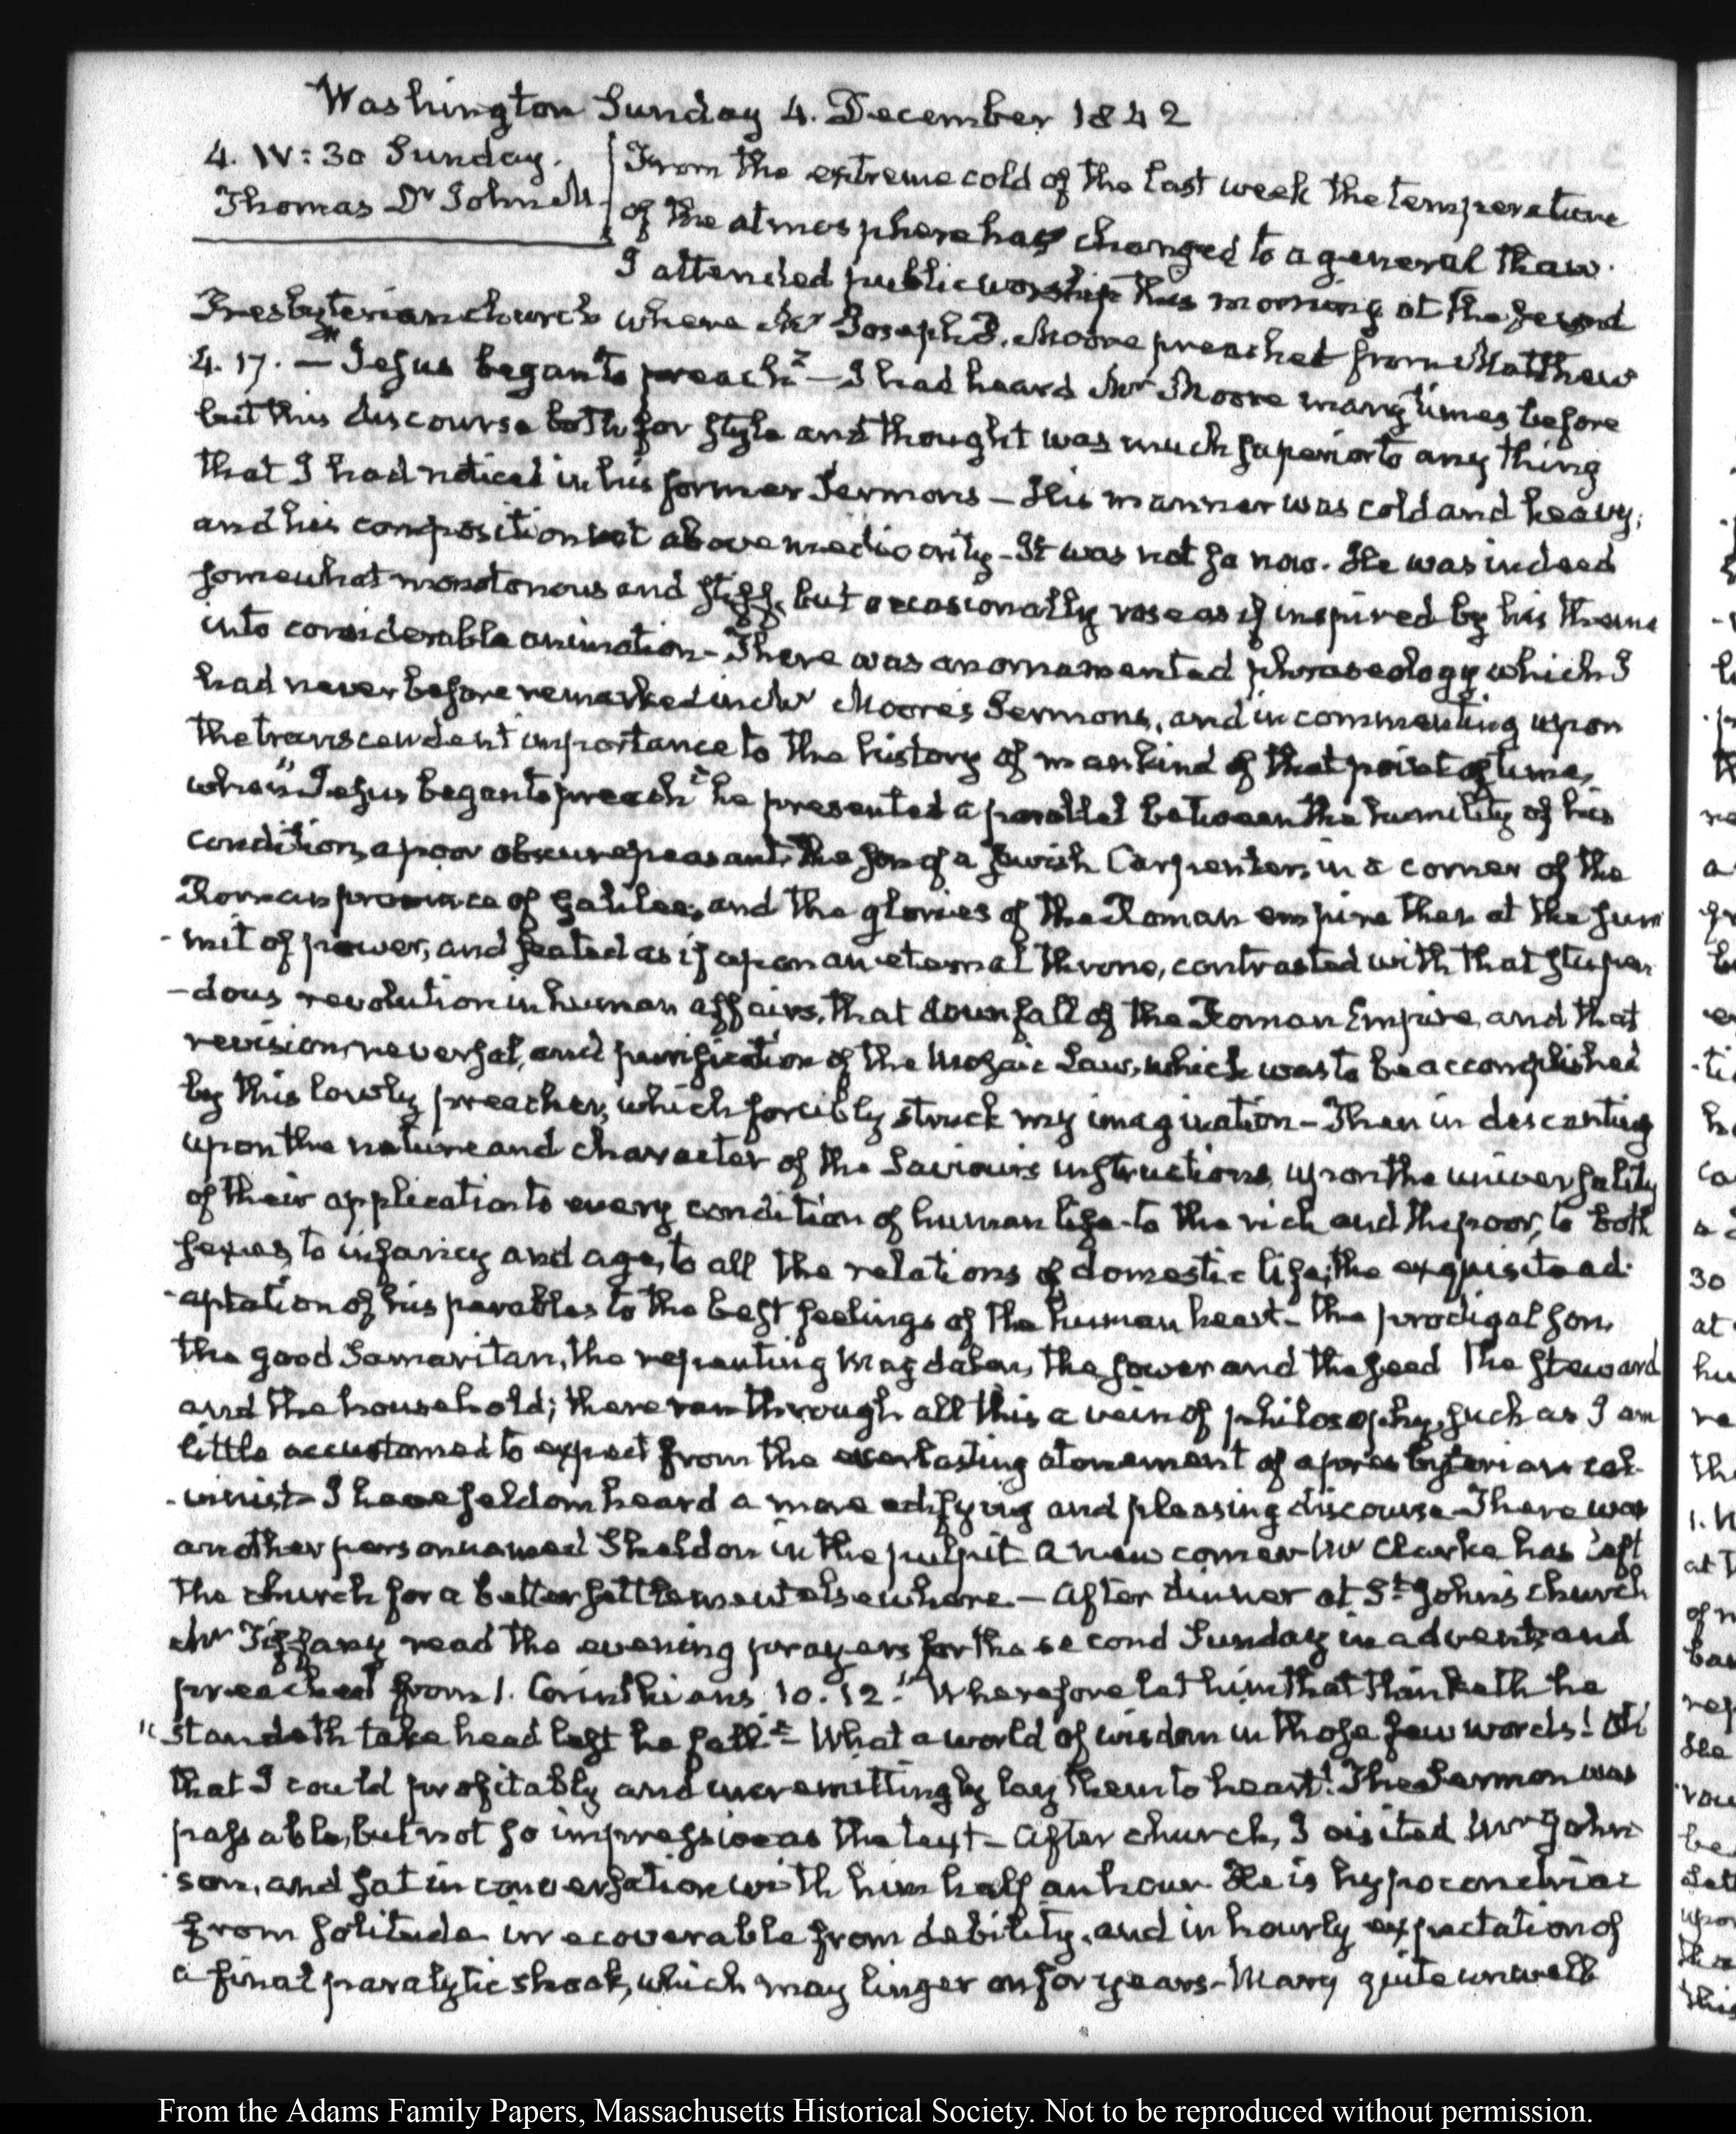 Washington Sunday 4. December 1842
4. IV:30 Sunday.
Thomas Dr John M
From the extreme cold of the last week the temperature
of the atmosphere has changed to a general thaw.
I attended public worship this morning at the second
Presbyterian church where Mr Joseph Moore preached from Matthew
4. 17. — "Jesus began to preach" — I had heard Mr Moore many times before
but this discourse both for style and thought was much superior to any thing
that I had noticed in his former Sermons — His manner was cold and heavy;
and his composition not above mediocrity — It was not so now. He was indeed
somewhat monotonous and stiff, but occasionally rose as if inspired by his theme
into considerable animation — There was an ornamented phraseology which I
had never before remarked in Mr Moore's Sermons, and in commenting upon
the transcendent importance to the history of mankind of that point of time,
when "Jesus began to preach" he presented a parallel between the humility of his
condition, a poor obscure peasant, the son of a Jewish Carpenter, in a corner of the
Roman province of Galilee, and the glories of the Roman empire then at the sum
-mit of power, and seated as if upon an eternal throne, contrasted with that stupen
-dous revolution in human affairs, that downfall of the Roman Empire, and that
revision, reversal, and purification of the Mosaic Law, which was to be accomplished
by this lowly preacher, which forcibly struck my imagination — Then in descanting
upon the nature and character of the Saviour's instructions, upon the universality
of their application to every condition of human life — to the rich and the poor, to both
sexes, to infancy and age, to all the relations of domestic life; the exquisite ad-
-aptation of his parables to the best feelings of the human heart — the prodigal son,
the good Samaritan, the repenting Magdalen, the sower and the seed the steward
and the household; there ran through all this a vein of philosophy, such as I am
little accustomed to expect from the everlasting atonement of a presbyterian cal-
-vinist — I have seldom heard a more edifying and pleasing discourse — There was
another person named Sheldon in the pulpit a new comer — Mr Clarke has left
the church for a better settlement elsewhere — After dinner at St John's church
Mr Tiffany read the evening prayers for the second Sunday in advent, and
preached from 1. Corinthians 10. 12. "Wherefore let him that thinketh he
"standeth take heed lest he fall" — What a world of wisdom in those few words! Oh!
that I could profitably and unremittingly lay them to heart! The Sermon was
passable, but not so impressive as the text — After church, I visited Mr John-
-son, and sat in conversation with him half an hour. He is hypocondriac
from solitude irrecoverable from debility, and in hourly expectation of
a final paralytic shock, which may linger on for years — Mary quite unwell
From the Adams Family Papers, Massachusetts Historical Society. Not to be reproduced without permission.